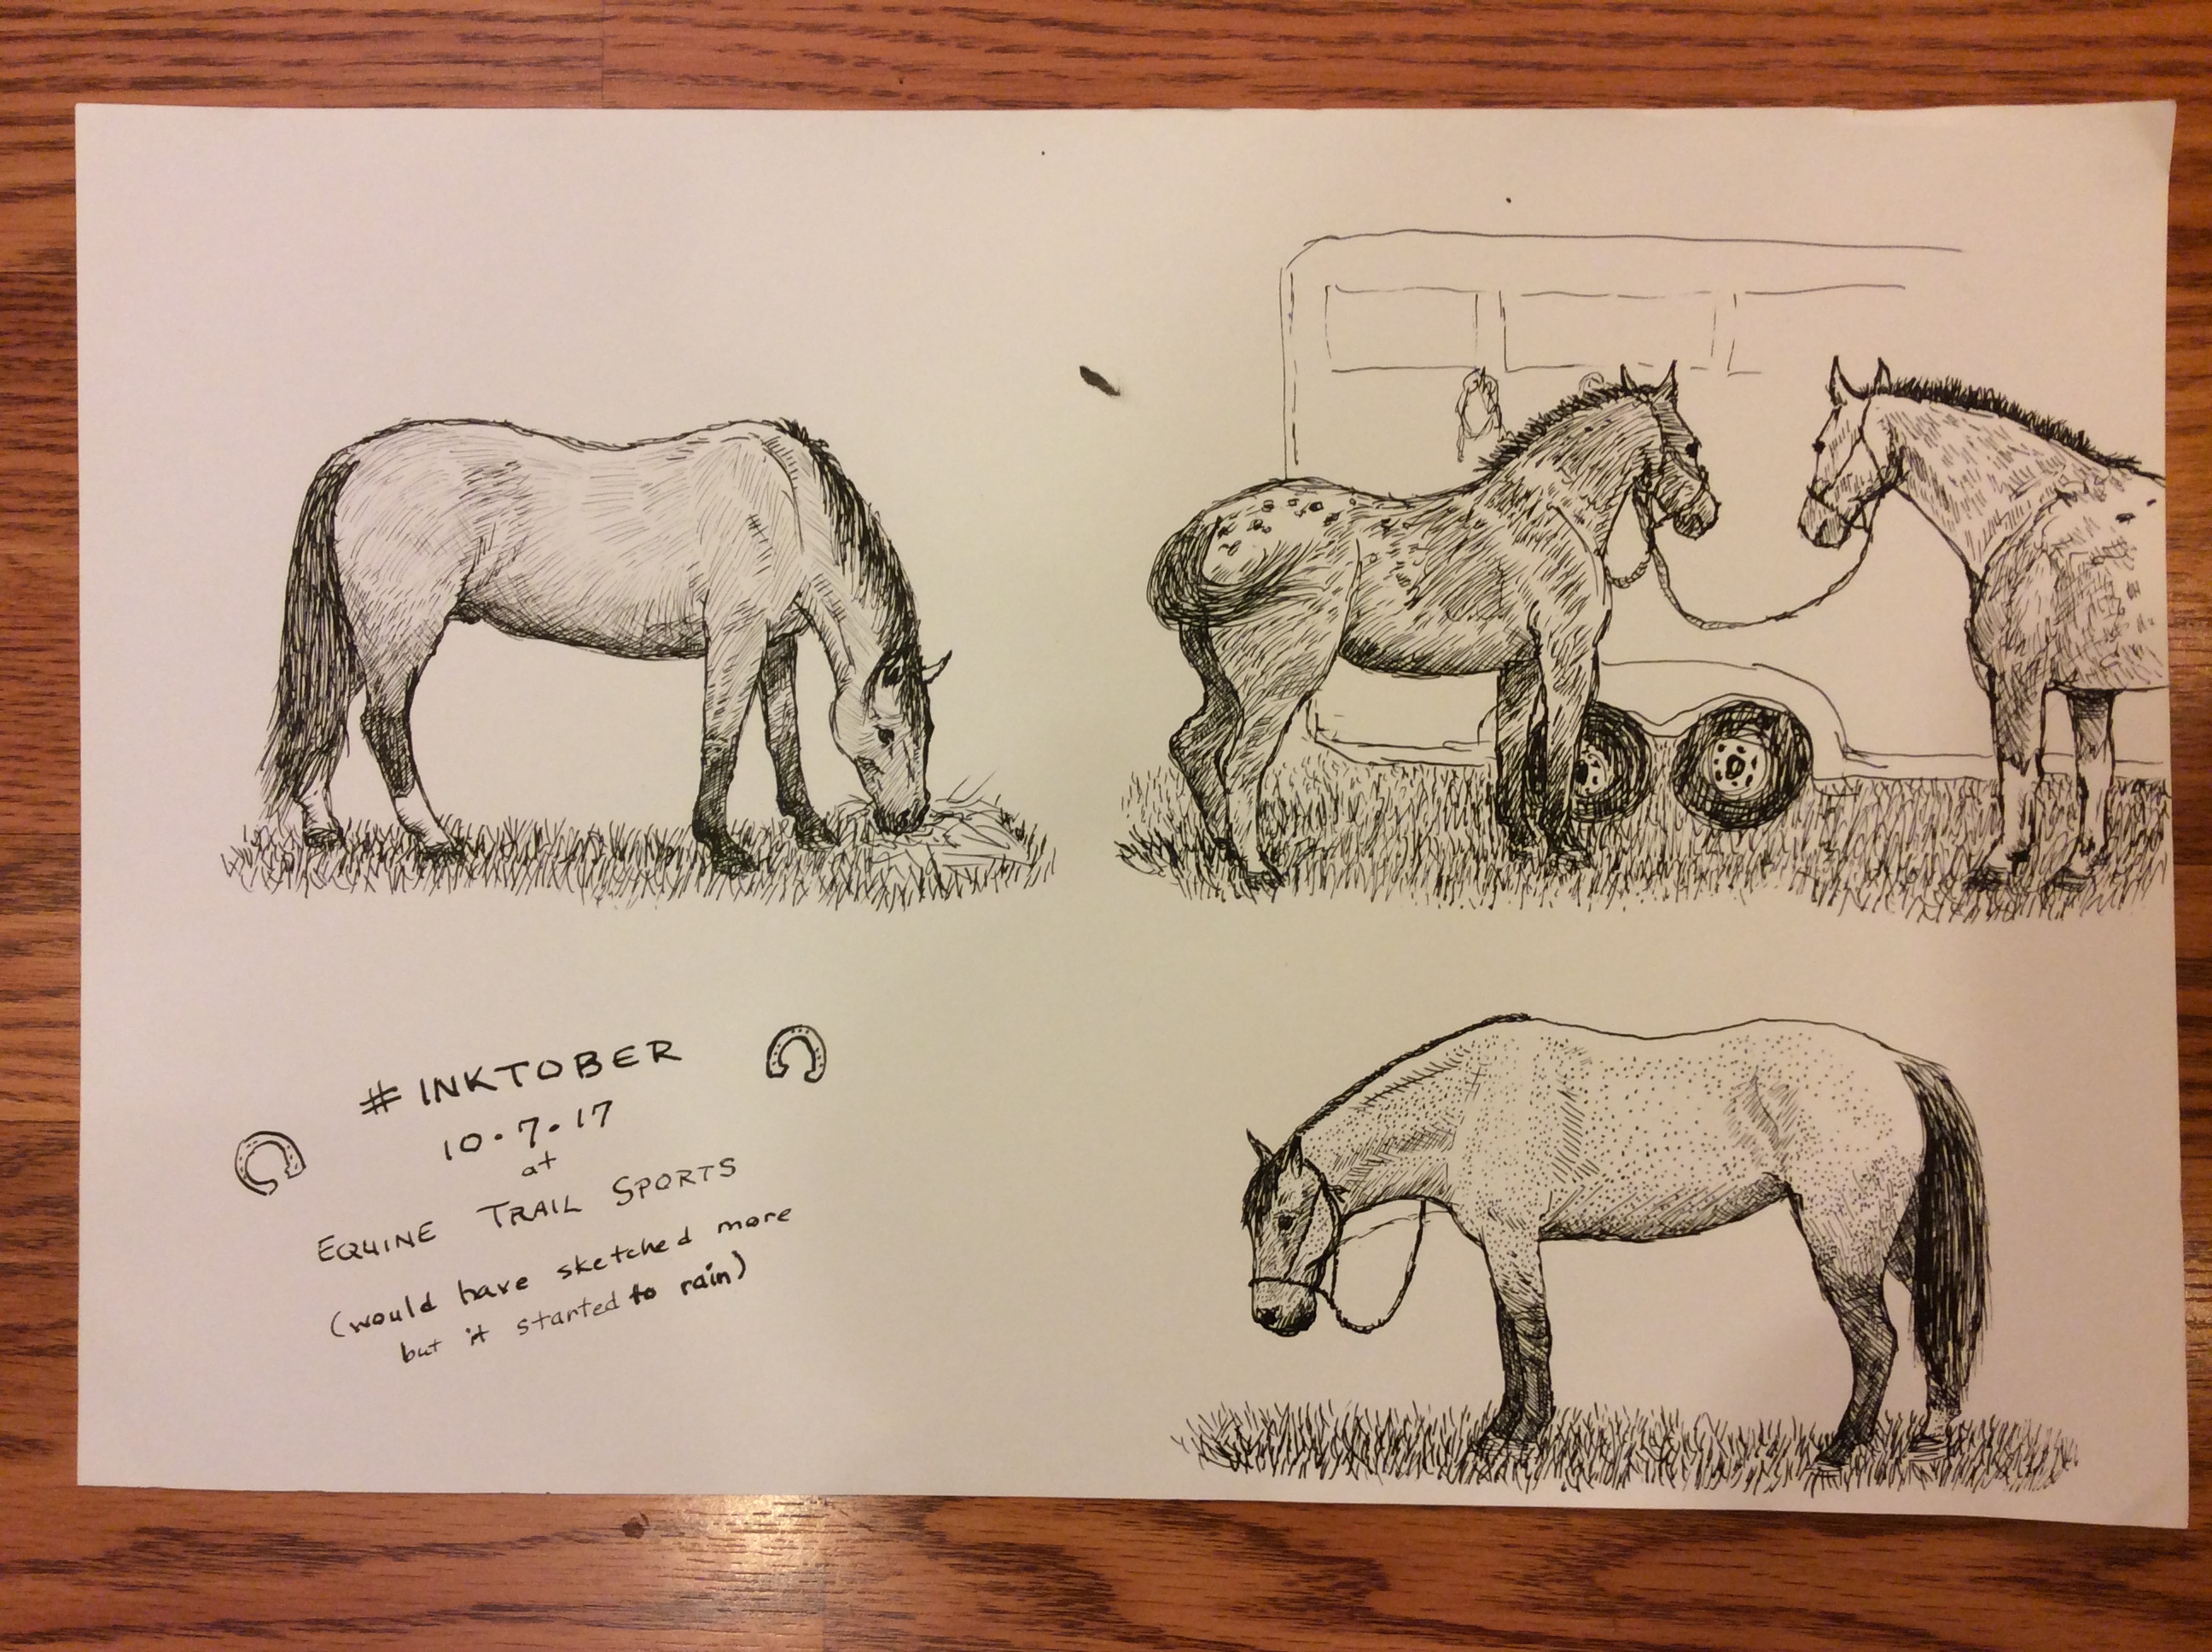 #INKTOBER
10.7.17
at
EQUINE TRAIL SPORTS
(would have sketched more
but it started to rain)